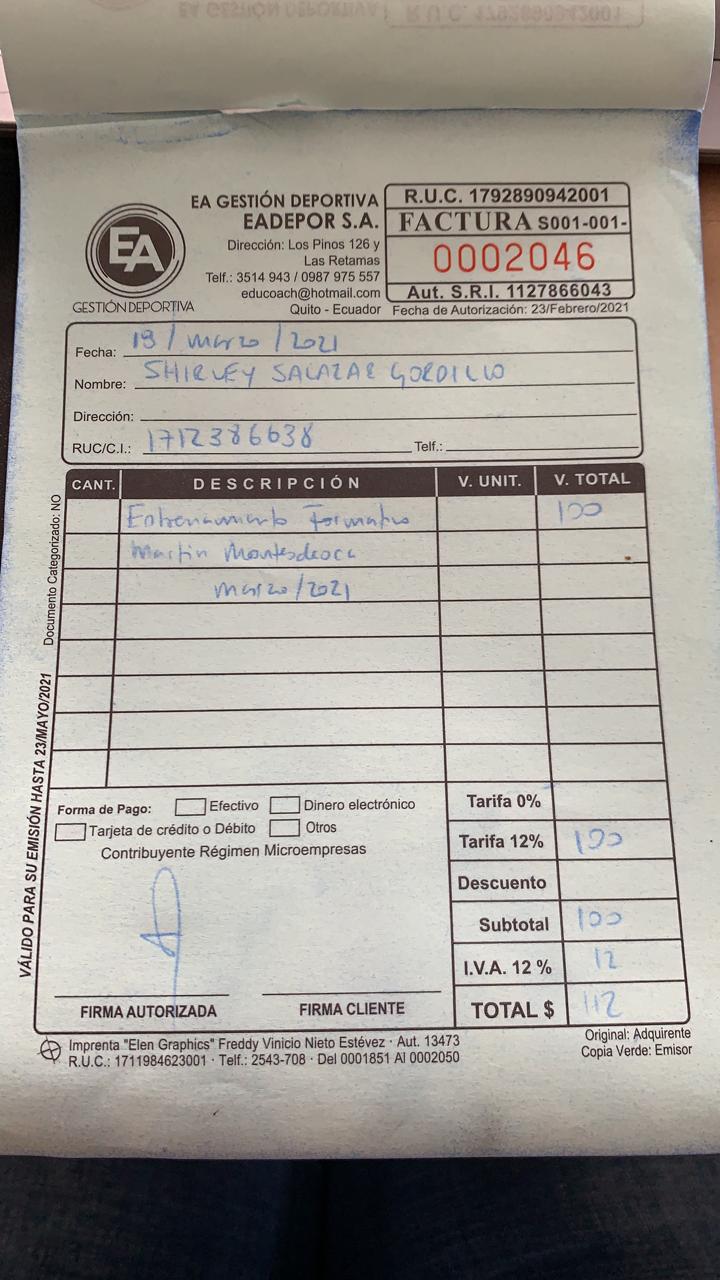 EA GESTIÓN DEPORTIVA
EADEPOR S.A.
Dirección: Los Pinos 126 y
Las Retamas
Telf.: 3514 943 / 0987 975 557
educoach@hotmail.com
Quito - Ecuador
EA
GESTIÓN DEPORTIVA
R.U.C. 1792890942001
FACTURA S001-001-
0002046
Aut. S.R.I. 1127866043
Fecha de Autorización: 23/Febrero/2021
Fecha: 19/marzo/2021
Nombre: SHIRLEY SALAZAR GORDILLO
Dirección:
RUC/C.I.: 1712386638 Telf.:
CANT. DESCRIPCIÓN V. UNIT. V. TOTAL
Entrenamiento Formativo 100
Martin Montesdeoca
marzo/2021
Documento Categorizado: NO
VÁLIDO PARA SU EMISIÓN HASTA 23/MAYO/2021
Forma de Pago: Efectivo Dinero electrónico
Tarjeta de crédito o Débito Otros
Contribuyente Régimen Microempresas
Tarifa 0%
Tarifa 12% 100
Descuento
Subtotal 100
I.V.A. 12 % 12
TOTAL $ 112
FIRMA AUTORIZADA FIRMA CLIENTE
Imprenta "Elen Graphics" Freddy Vinicio Nieto Estévez · Aut. 13473
R.U.C.: 1711984623001 · Telf.: 2543-708 · Del 0001851 Al 0002050
Original: Adquirente
Copia Verde: Emisor